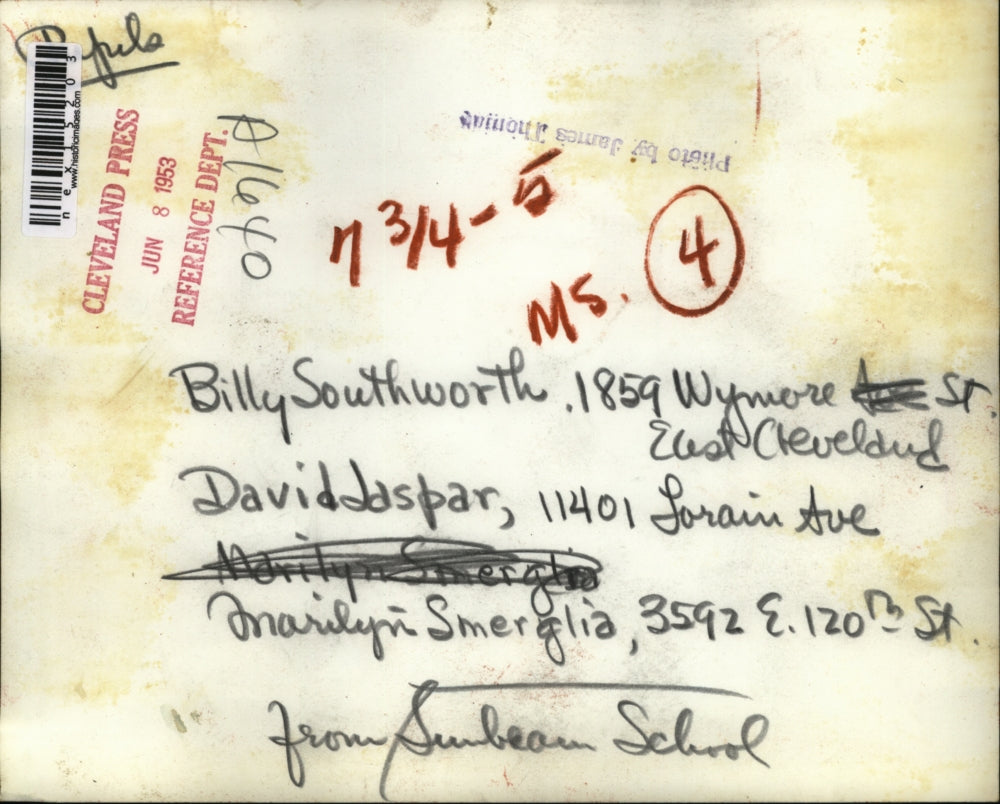 nex15203
www.historicimages.com
CLEVELAND PRESS
JUN 8 1953
REFERENCE DEPT.
A1640
Photo by James Thomas
7 3/4 - 5
MS. 4
Billy Southworth, 1859 Wymore St
East Cleveland
David Jaspar, 11401 Lorain Ave
Marilyn Smerglia
Marilyn Smerglia, 3592 E. 120th St.
from Sunbeam School